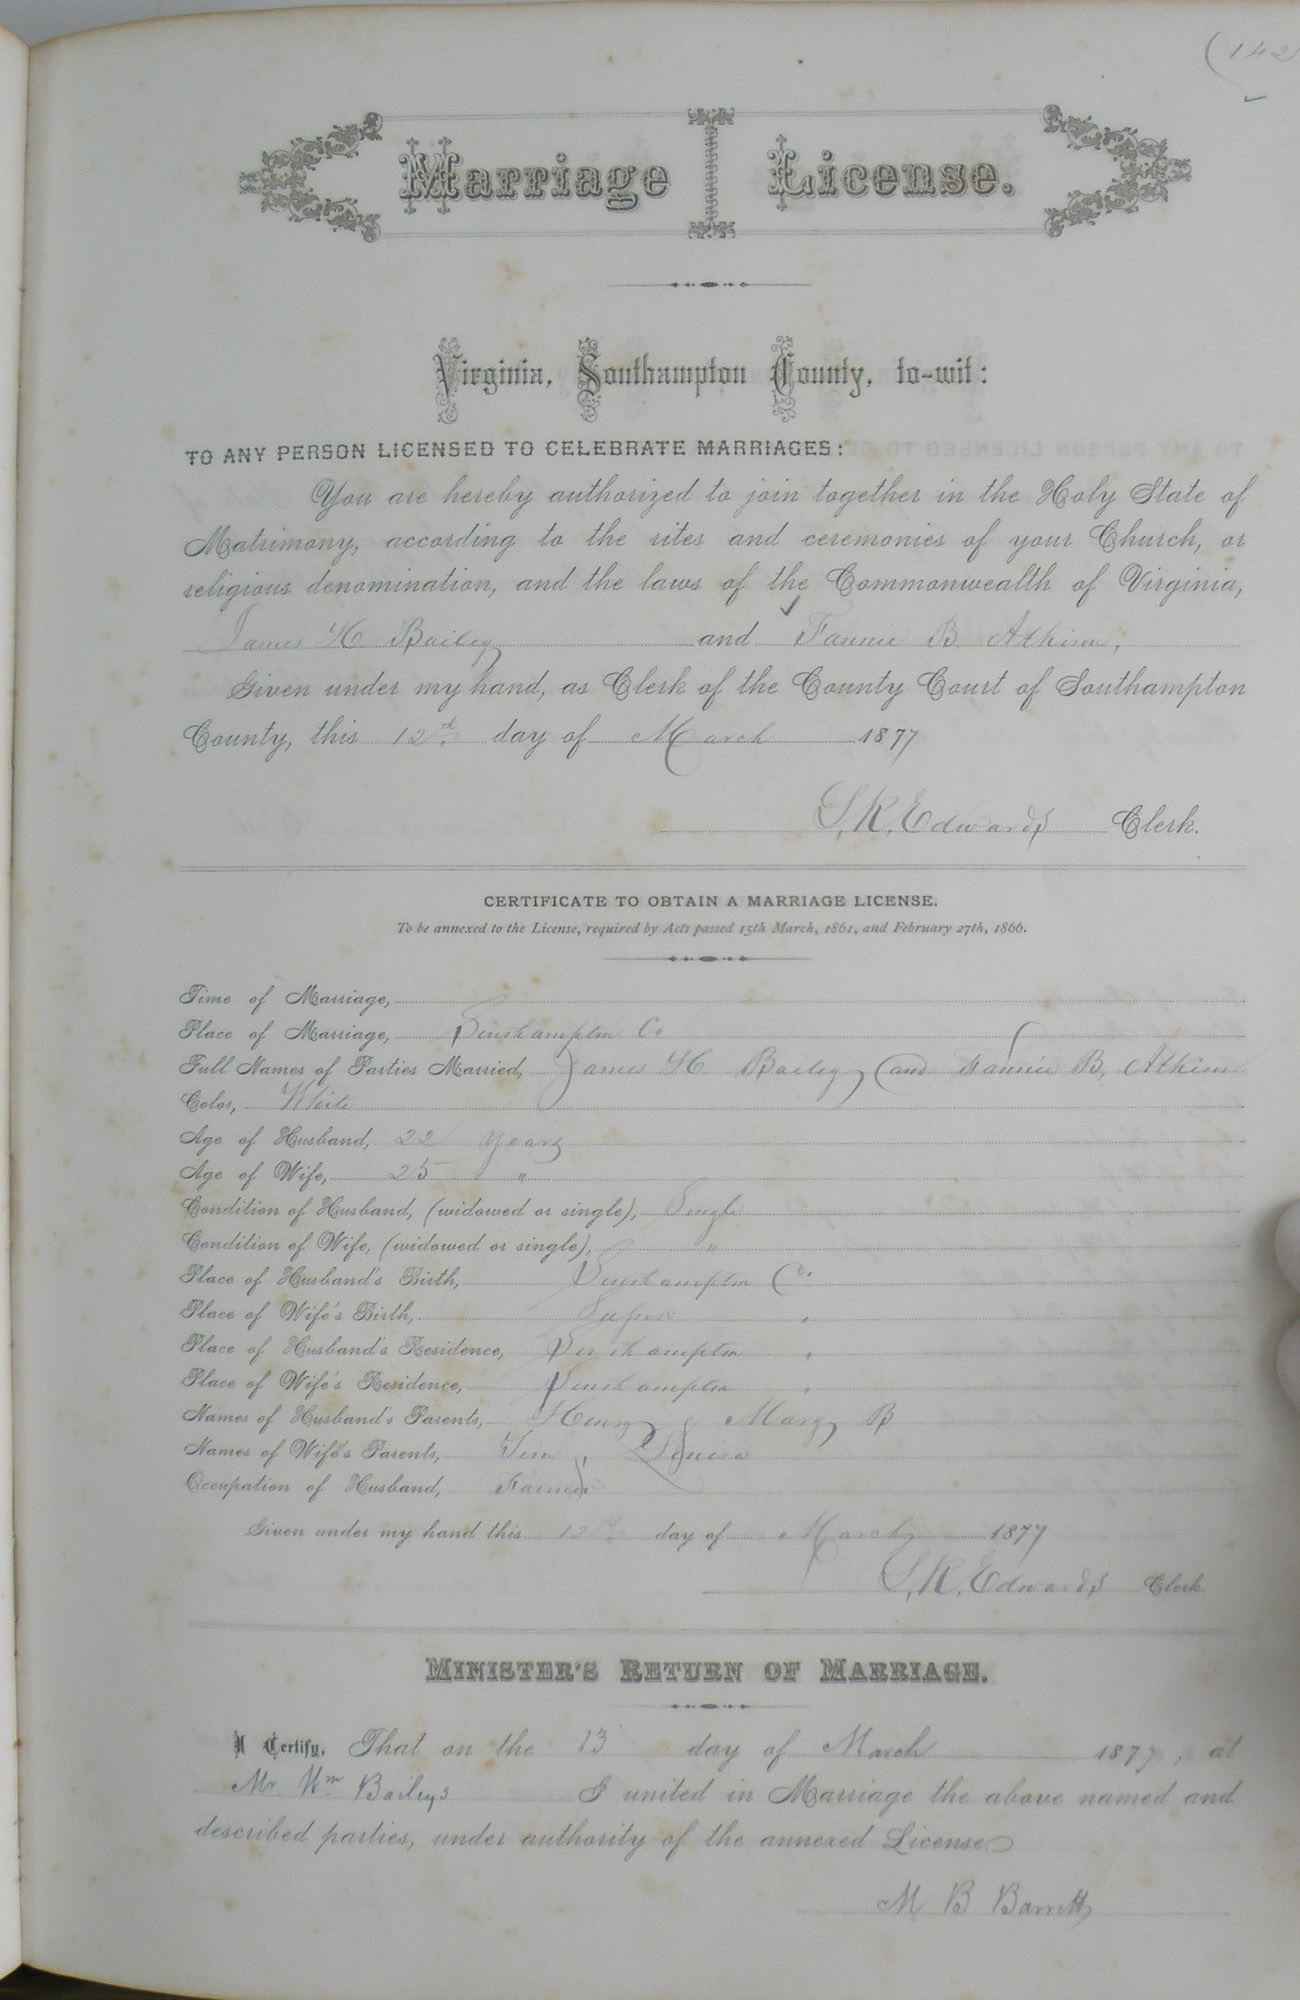 (142)
Marriage License.
Virginia, Southampton County, to-wit:
TO ANY PERSON LICENSED TO CELEBRATE MARRIAGES:
You are hereby authorized to join together in the Holy State of
Matrimony, according to the rites and ceremonies of your Church, or
religious denomination, and the laws of the Commonwealth of Virginia,
James H. Bailey and Fannie B. Atkins,
Given under my hand, as Clerk of the County Court of Southampton
County, this 12th day of March 1877
S. R. Edwards Clerk.
CERTIFICATE TO OBTAIN A MARRIAGE LICENSE.
To be annexed to the License, required by Acts passed 15th March, 1861, and February 27th, 1866.
Time of Marriage,
Place of Marriage, Southampton Co
Full Names of Parties Married, James H. Bailey and Fannie B, Atkins
Color, White
Age of Husband, 22 years
Age of Wife, 25 "
Condition of Husband, (widowed or single), Single
Condition of Wife, (widowed or single), "
Place of Husband's Birth, Southampton Co.
Place of Wife's Birth,
Place of Husband's Residence, Southampton
Place of Wife's Residence, Southampton
Names of Husband's Parents, Henry & Mary B
Names of Wife's Parents, Louisa
Occupation of Husband, Farmer
Given under my hand this 12th day of March 1877
S. R. Edwards Clerk.
MINISTER'S RETURN OF MARRIAGE.
I Certify, That on the 13 day of March 1877, at
Mr. Wm Baileys I united in Marriage the above named and
described parties, under authority of the annexed License
M B Barrett